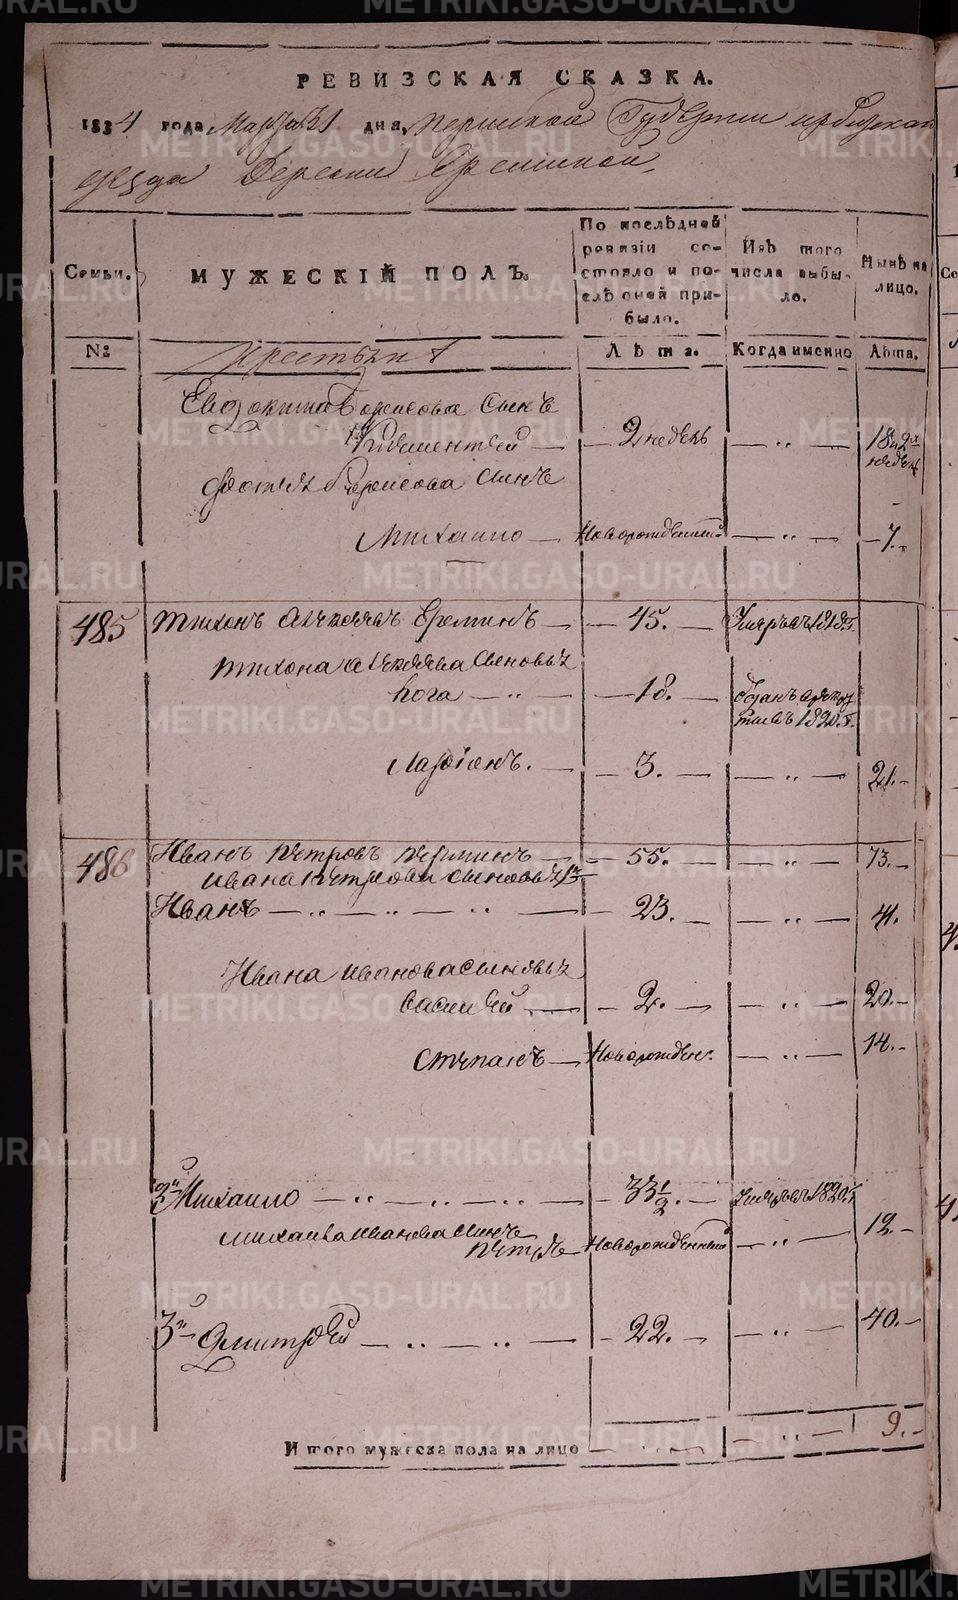 РЕВИЗСКАЯ СКАЗКА.
1834 года Марта 31 дня, Пермской Губернии Ирбитскаго
уезда Деревни
Семьи. МУЖЕСКІЙ ПОЛЪ. По послѣдней ревизіи состояло и послѣ оной прибыло. Изъ того числа выбыло. Нынѣ на лицо.
№ Крестьяне Лѣта. Когда именно Лѣта.
Евдокима Борисова сынъ
Климентей — 2 недель — „ —
Борисова сынъ
Михаило — Новорожденный — „ — 7. -
485 Тихонъ Еремин — 45. Умеръ въ 181
Тихона сыновья
— „ — 18. отданъ в рекруты въ 1820. г.
Ларіонъ. — 3. — „ — 21. -
486 Иванъ Петровъ — 55. — „ — 73. -
Ивана Петрова сыновья 1й
Иванъ — „ — „ — „ — 23. — „ — 41.
Ивана Иванова сыновья
Василей — 2. — „ — 20. -
Степанъ — Новорожден: — „ — 14. -
2й Михаило — „ — „ — „ — 33 1/2. Умеръ въ 1820. г.
Михаила Иванова сынъ
Петръ — Новорожденный — „ — 12. -
3й Дмитрей — „ — „ — 22. — „ — 40. -
Итого мужеска пола на лицо — „ — — „ — 9. -
METRIKI.GASO-URAL.RU